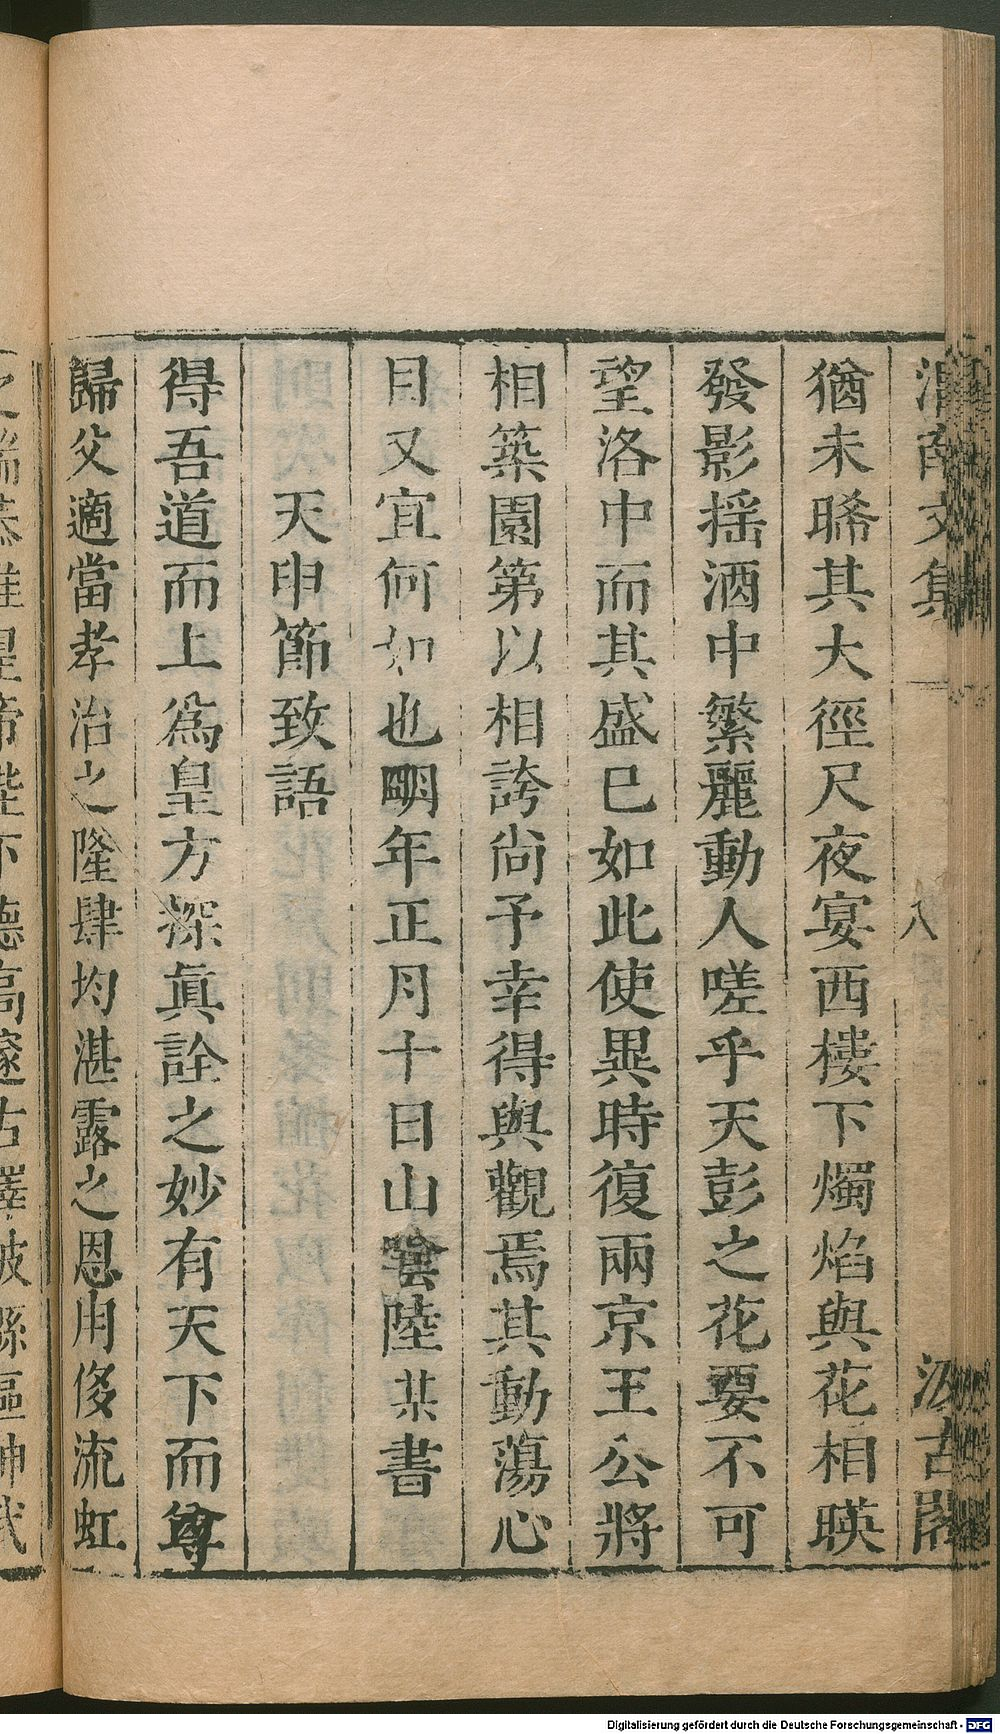 渭南文集
八
汲古閣
猶未晞其大徑尺夜宴西樓下燭焰與花相暎
發影搖酒中繁麗動人嗟乎天彭之花要不可
望洛中而其盛已如此使異時復兩京王公將
相築園第以相誇尚予幸得與觀焉其動蕩心
目又宜何如也明年正月十日山陰陸某書
天申節致語
得吾道而上爲皇方探眞詮之妙有天下而尊
歸父適當孝治之隆肆均湛露之恩用侈流虹
皇帝陛下德高邃古澤被縣區神武
Digitalisierung gefördert durch die Deutsche Forschungsgemeinschaft - DFG